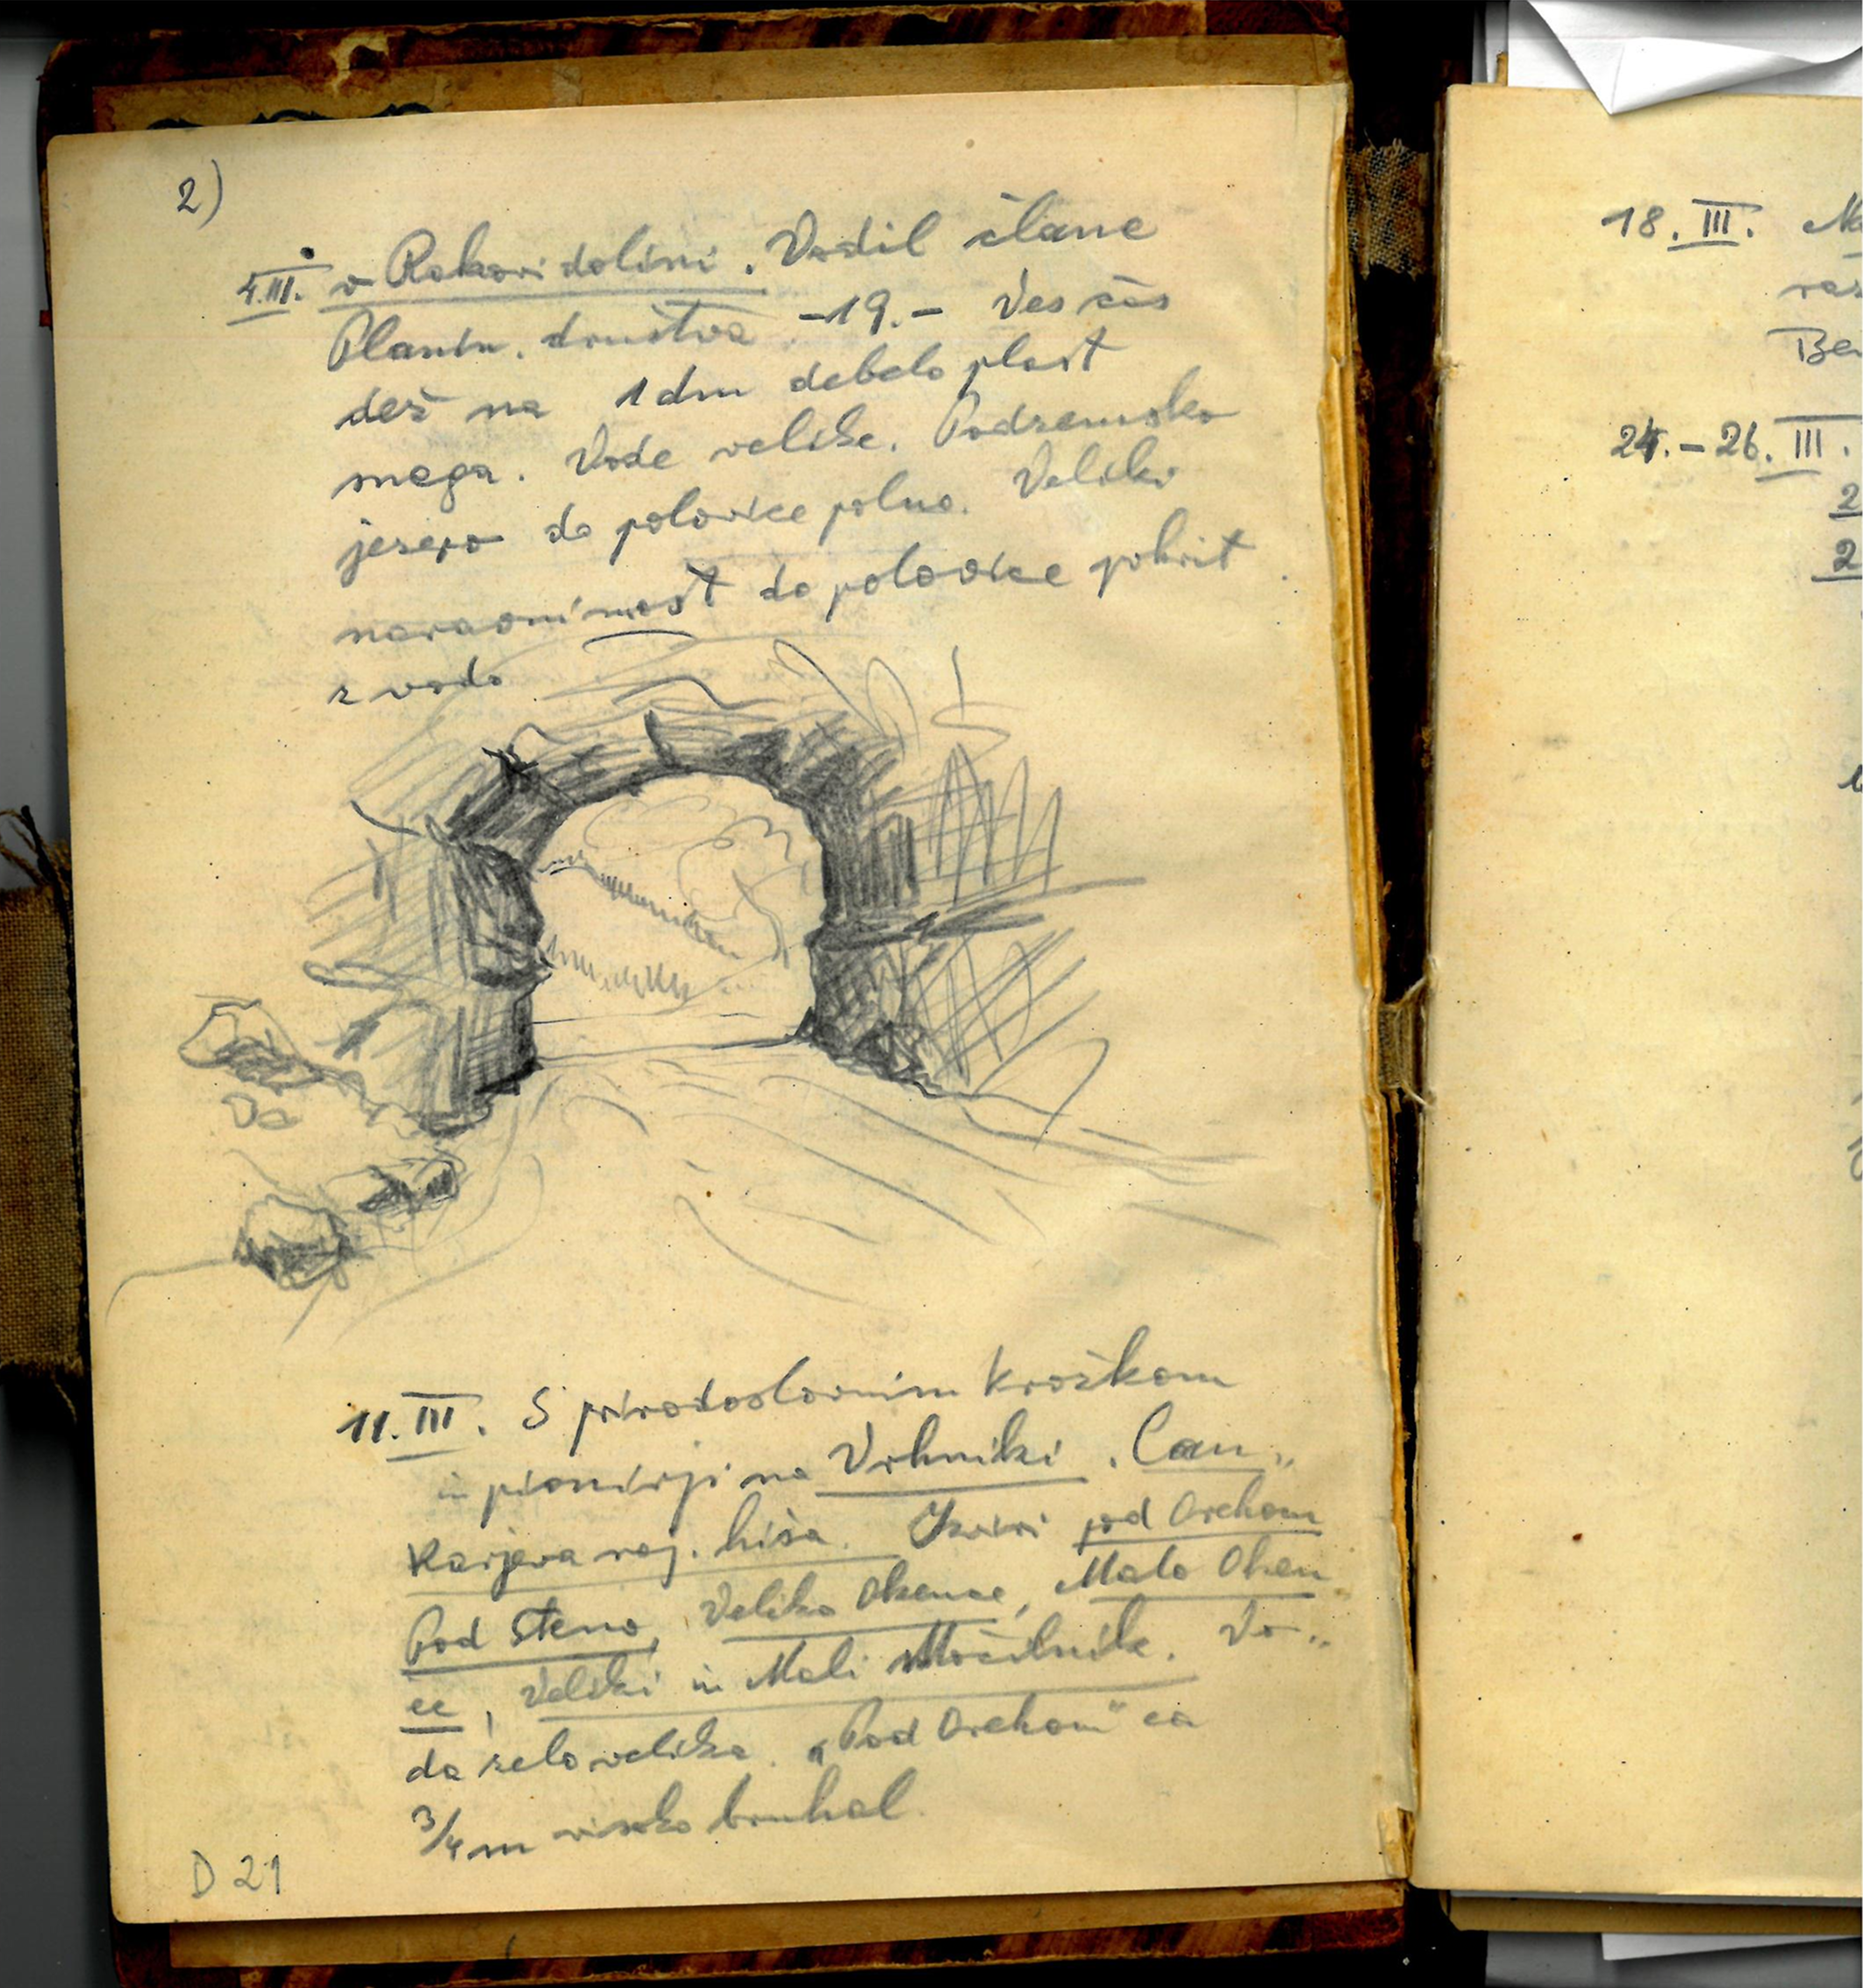 2)
4.III. v Rakovi dolini. Vodil člane
Planin. društva. -19.- Ves čas
dež na 1 dm debelo plast
snega. Vode velike. Podzemsko
jezero do polovice polno. Veliki
naravni most do polovice pokrit
z vodo
11.III. S prirodoslovnim krožkom
in pionirji na Vrhniki. Can„
karjeva roj. hiša. Izviri pod Orehom
Pod Steno, Veliko Okence, Malo Oken„
ce, Veliki in Mali Močilnik. Vo„
da zelo velika. „Pod Orehom" ca
3/4 m visoko bruhal.
D 21
18. III.
Be
24. - 26. III.
2
2